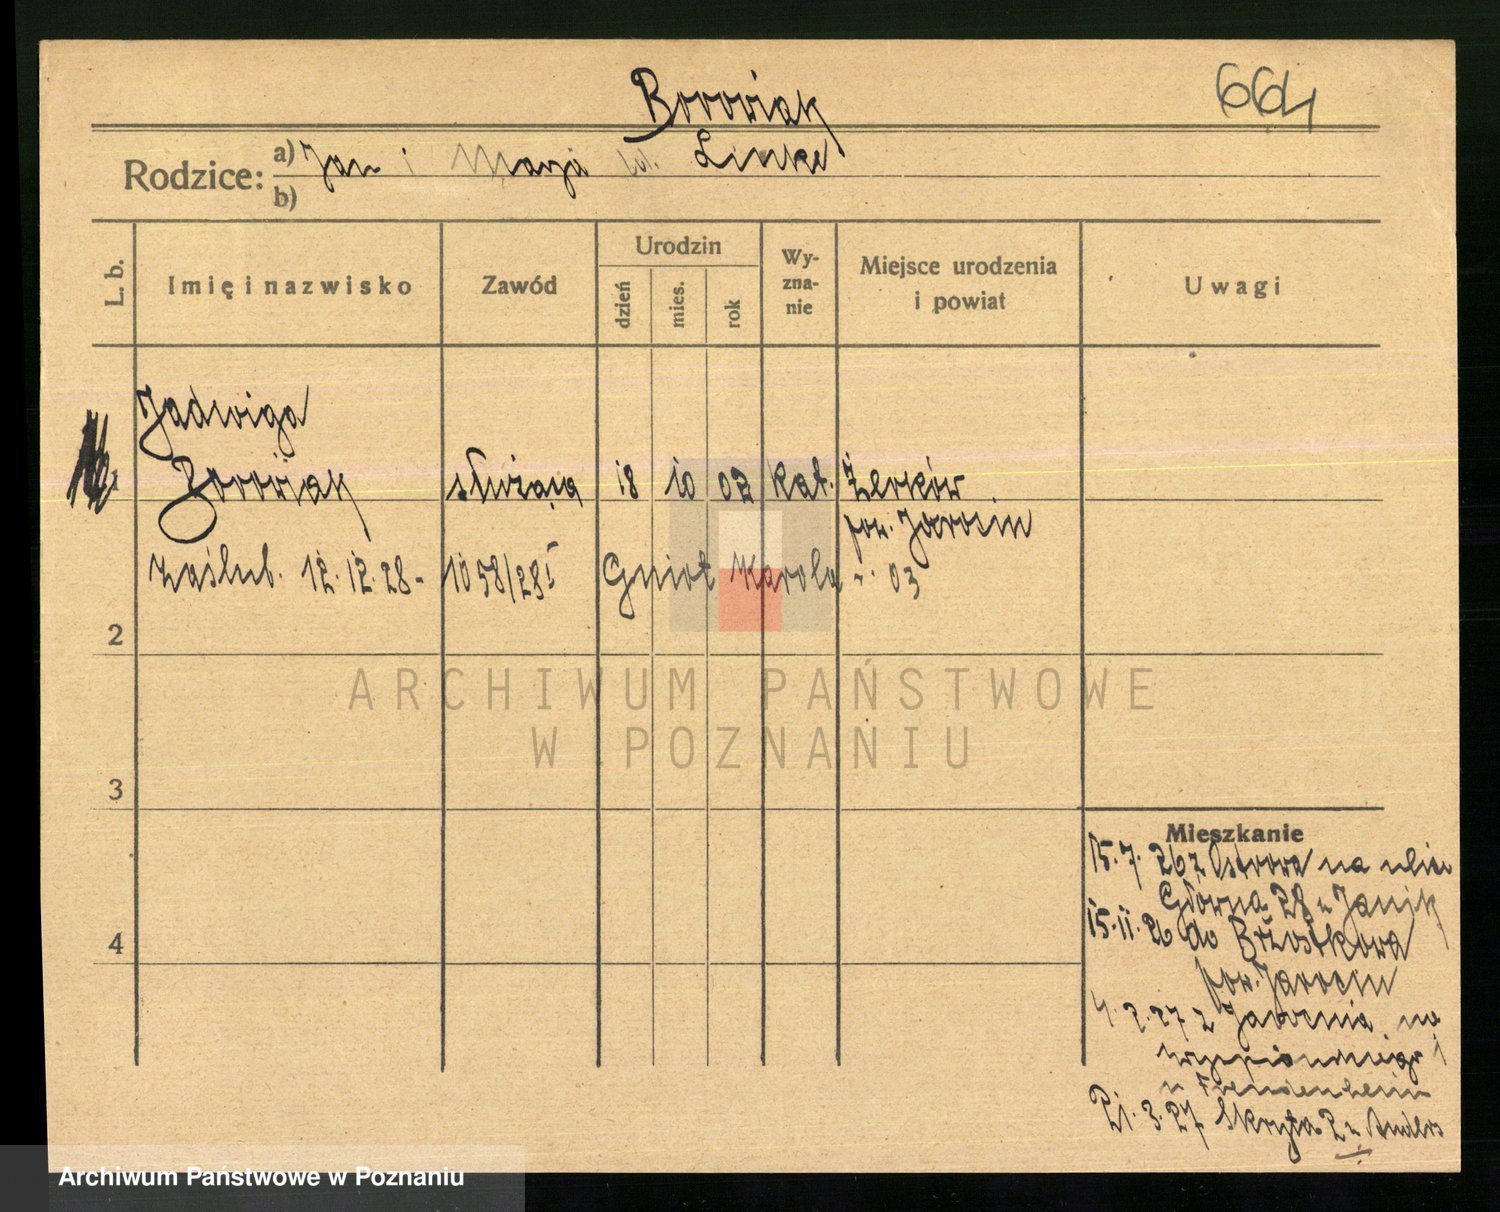 Borowiak
664
Rodzice: a) Jan i Marja Linke
b)
L. b.
Imię i nazwisko
Zawód
Urodzin
dzień
mies.
rok
Wy-
zna-
nie
Miejsce urodzenia
i powiat
Uwagi
Jadwiga
Borowiak służąca 18 10 02 kat. Żerków
pow. Jarocin
zaślub. 12.12.28 - 1058/28 I Gniot Karola r. 03
2
3
4
ARCHIWUM PAŃSTWOWE
W POZNANIU
Mieszkanie
15.7.26 z Ostrowa na ulicę
Główna 28 u Janik
15.11.26 do Brzostkowa
pow. Jarocin
4.2.27 z Jarocina na
Wyspiańskiego 1
u Freudenheim
21.3.27 Skryta 2
Archiwum Państwowe w Poznaniu